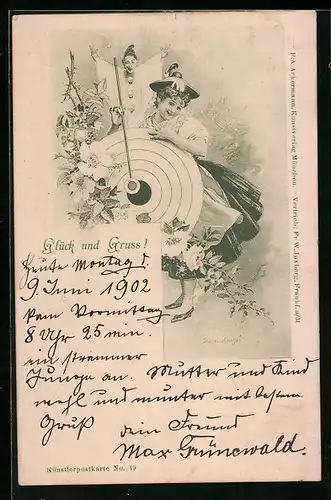 Glück und Gruss!
Heute Montag d.
9. Juni 1902
kam Vormittag
8 Uhr 25 min.
ein strammer
Junge an. Mutter und Kind
wohl und munter mit bestem
Gruß dein Freund
Max Grünewald.
Künstlerpostkarte No. 49
F. A. Ackermann, Kunstverlag München. – Vertrieb: Fr. W. Juxberg, Frankf. a/M